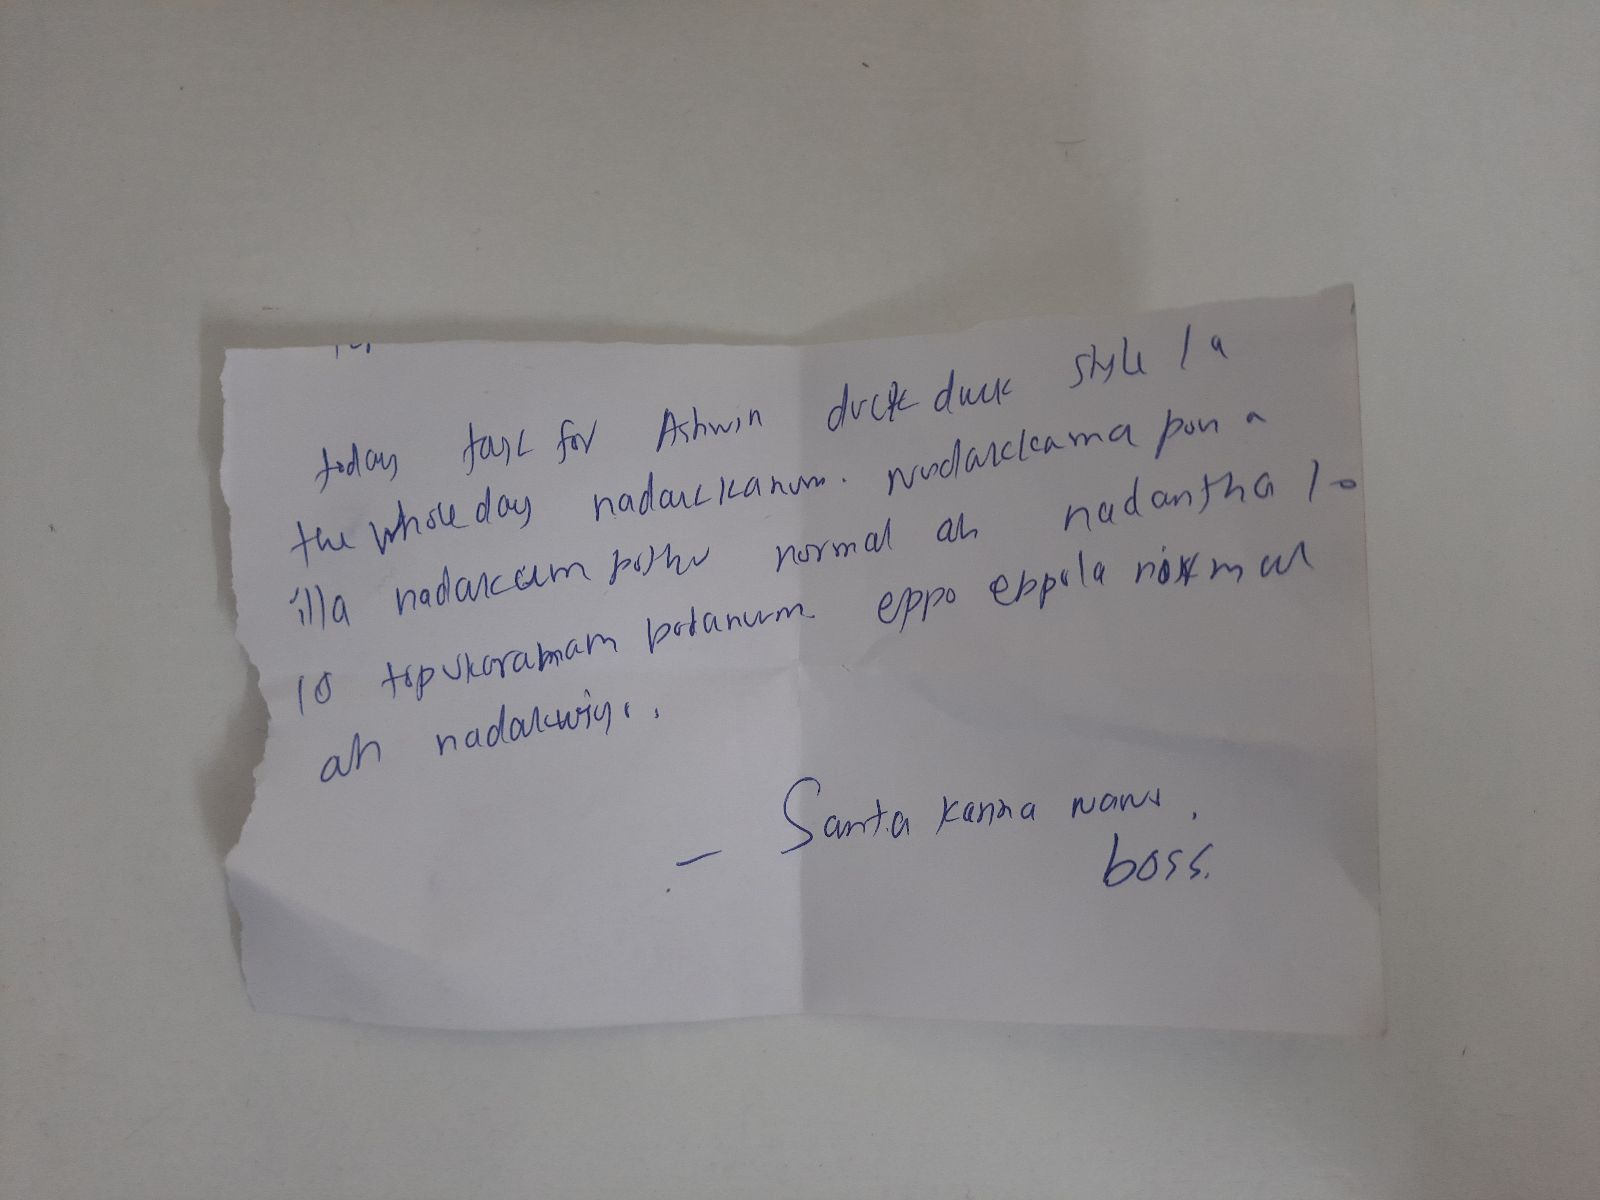 today task for Ashwin duck duck style la
the whole day nadakkanum. nadakkama pona
illa nadakum pothu normal ah nadantha
10 topukaranam podanum eppo eppola normal
ah nadakuriy..
- Santa kanna nanu.
boss.